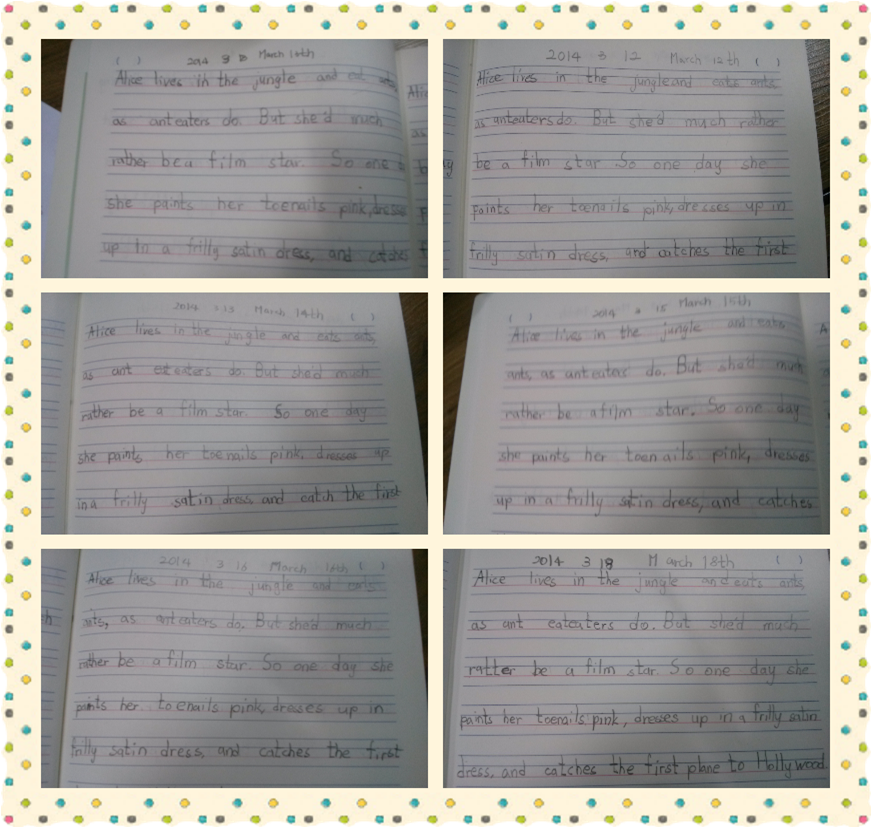 ( ) 2014 3 10 March 10th
Alice lives in the jungle and eat ants
as ant eaters do. But she'd much
rather be a film star. So one
she paints her toenails pink, dresses
up in a frilly satin dress, and catches
2014 3 12 March 12th ( )
Alice lives in the jungle and eats ants
as anteaters do. But she'd much rather
be a film star So one day she
paints her toenails pink, dresses up in
frilly satin dress, and catches the first
2014 3 14 March 14th ( )
Alice lives in the jungle and eats ants,
as ant eateaters do. But she'd much
rather be a film star. So one day
she paints her toenails pink, dresses up
in a frilly satin dress, and catch the first
( ) 2014 3 15 March 15th
Alice lives in the jungle and eats
ants, as ant eaters do. But she'd much
rather be a film star. So one day
she paints her toenails pink, dresses
up in a frilly satin dress, and catches
2014 3 16 March 16th ( )
Alice lives in the jungle and eats
ants, as ant eaters do. But she'd much
rather be a film star. So one day she
paints her toenails pink, dresses up in
frilly satin dress, and catches the first
2014 3 18 March 18th ( )
Alice lives in the jungle and eats ants,
as ant eateaters do. But she'd much
ratter be a film star. So one day she
paints her toenails pink, dresses up in a frilly satin
dress, and catches the first plane to Hollywood.